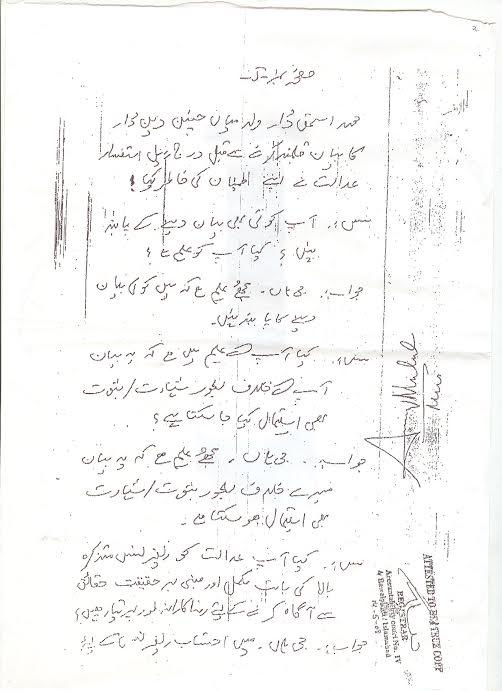 محمد اسحق ڈار ولد میاں
کا بیان قلمبند کرنے سے قبل درج ذیل استفسار
عدالت نے اپنے اطمینان کی خاطر کیا؟
س: آپ کوئی بھی بیان دینے کے پابند
ہیں؟ کیا آپ کو علم ہے؟
جواب: جی ہاں۔ مجھے علم ہے کہ میں کوئی بیان
دینے کا پابند نہیں۔
س: کیا آپ کے علم میں ہے کہ یہ بیان
آپ کے خلاف بطور شہادت/ثبوت
بھی استعمال کیا جا سکتا ہے؟
جواب: جی ہاں۔ مجھے علم ہے کہ یہ بیان
میرے خلاف بطور ثبوت/شہادت
بھی استعمال ہو سکتا ہے۔
س: کیا آپ عدالت کو ریفرنس متذکرہ
بالا کی بابت مکمل اور مبنی بر حقیقت حقائق
سے آگاہ کرنے کے لیے رضاکارانہ طور پر تیار ہیں؟
جواب: جی ہاں۔ میں احتساب
ATTESTED TO BE TRUE COPY
REGISTRAR
Accountability Court No. IV
Rawalpindi / Islamabad